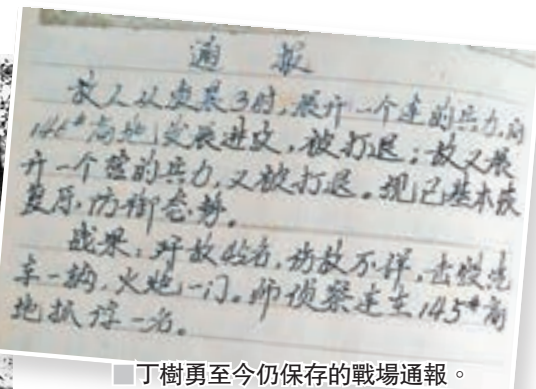 通 报
敌人从凌晨3时,展开一个连的兵力,向
145#高地发展进攻,被打退;敌又展
开一个营的兵力,又被打退。现已基本恢
复原防御态势。
战果:歼敌 名,伤敌不详,击毁
车一辆,火炮一门。师侦察连在145#高
地抓俘一名。
丁樹勇至今仍保存的戰場通報。